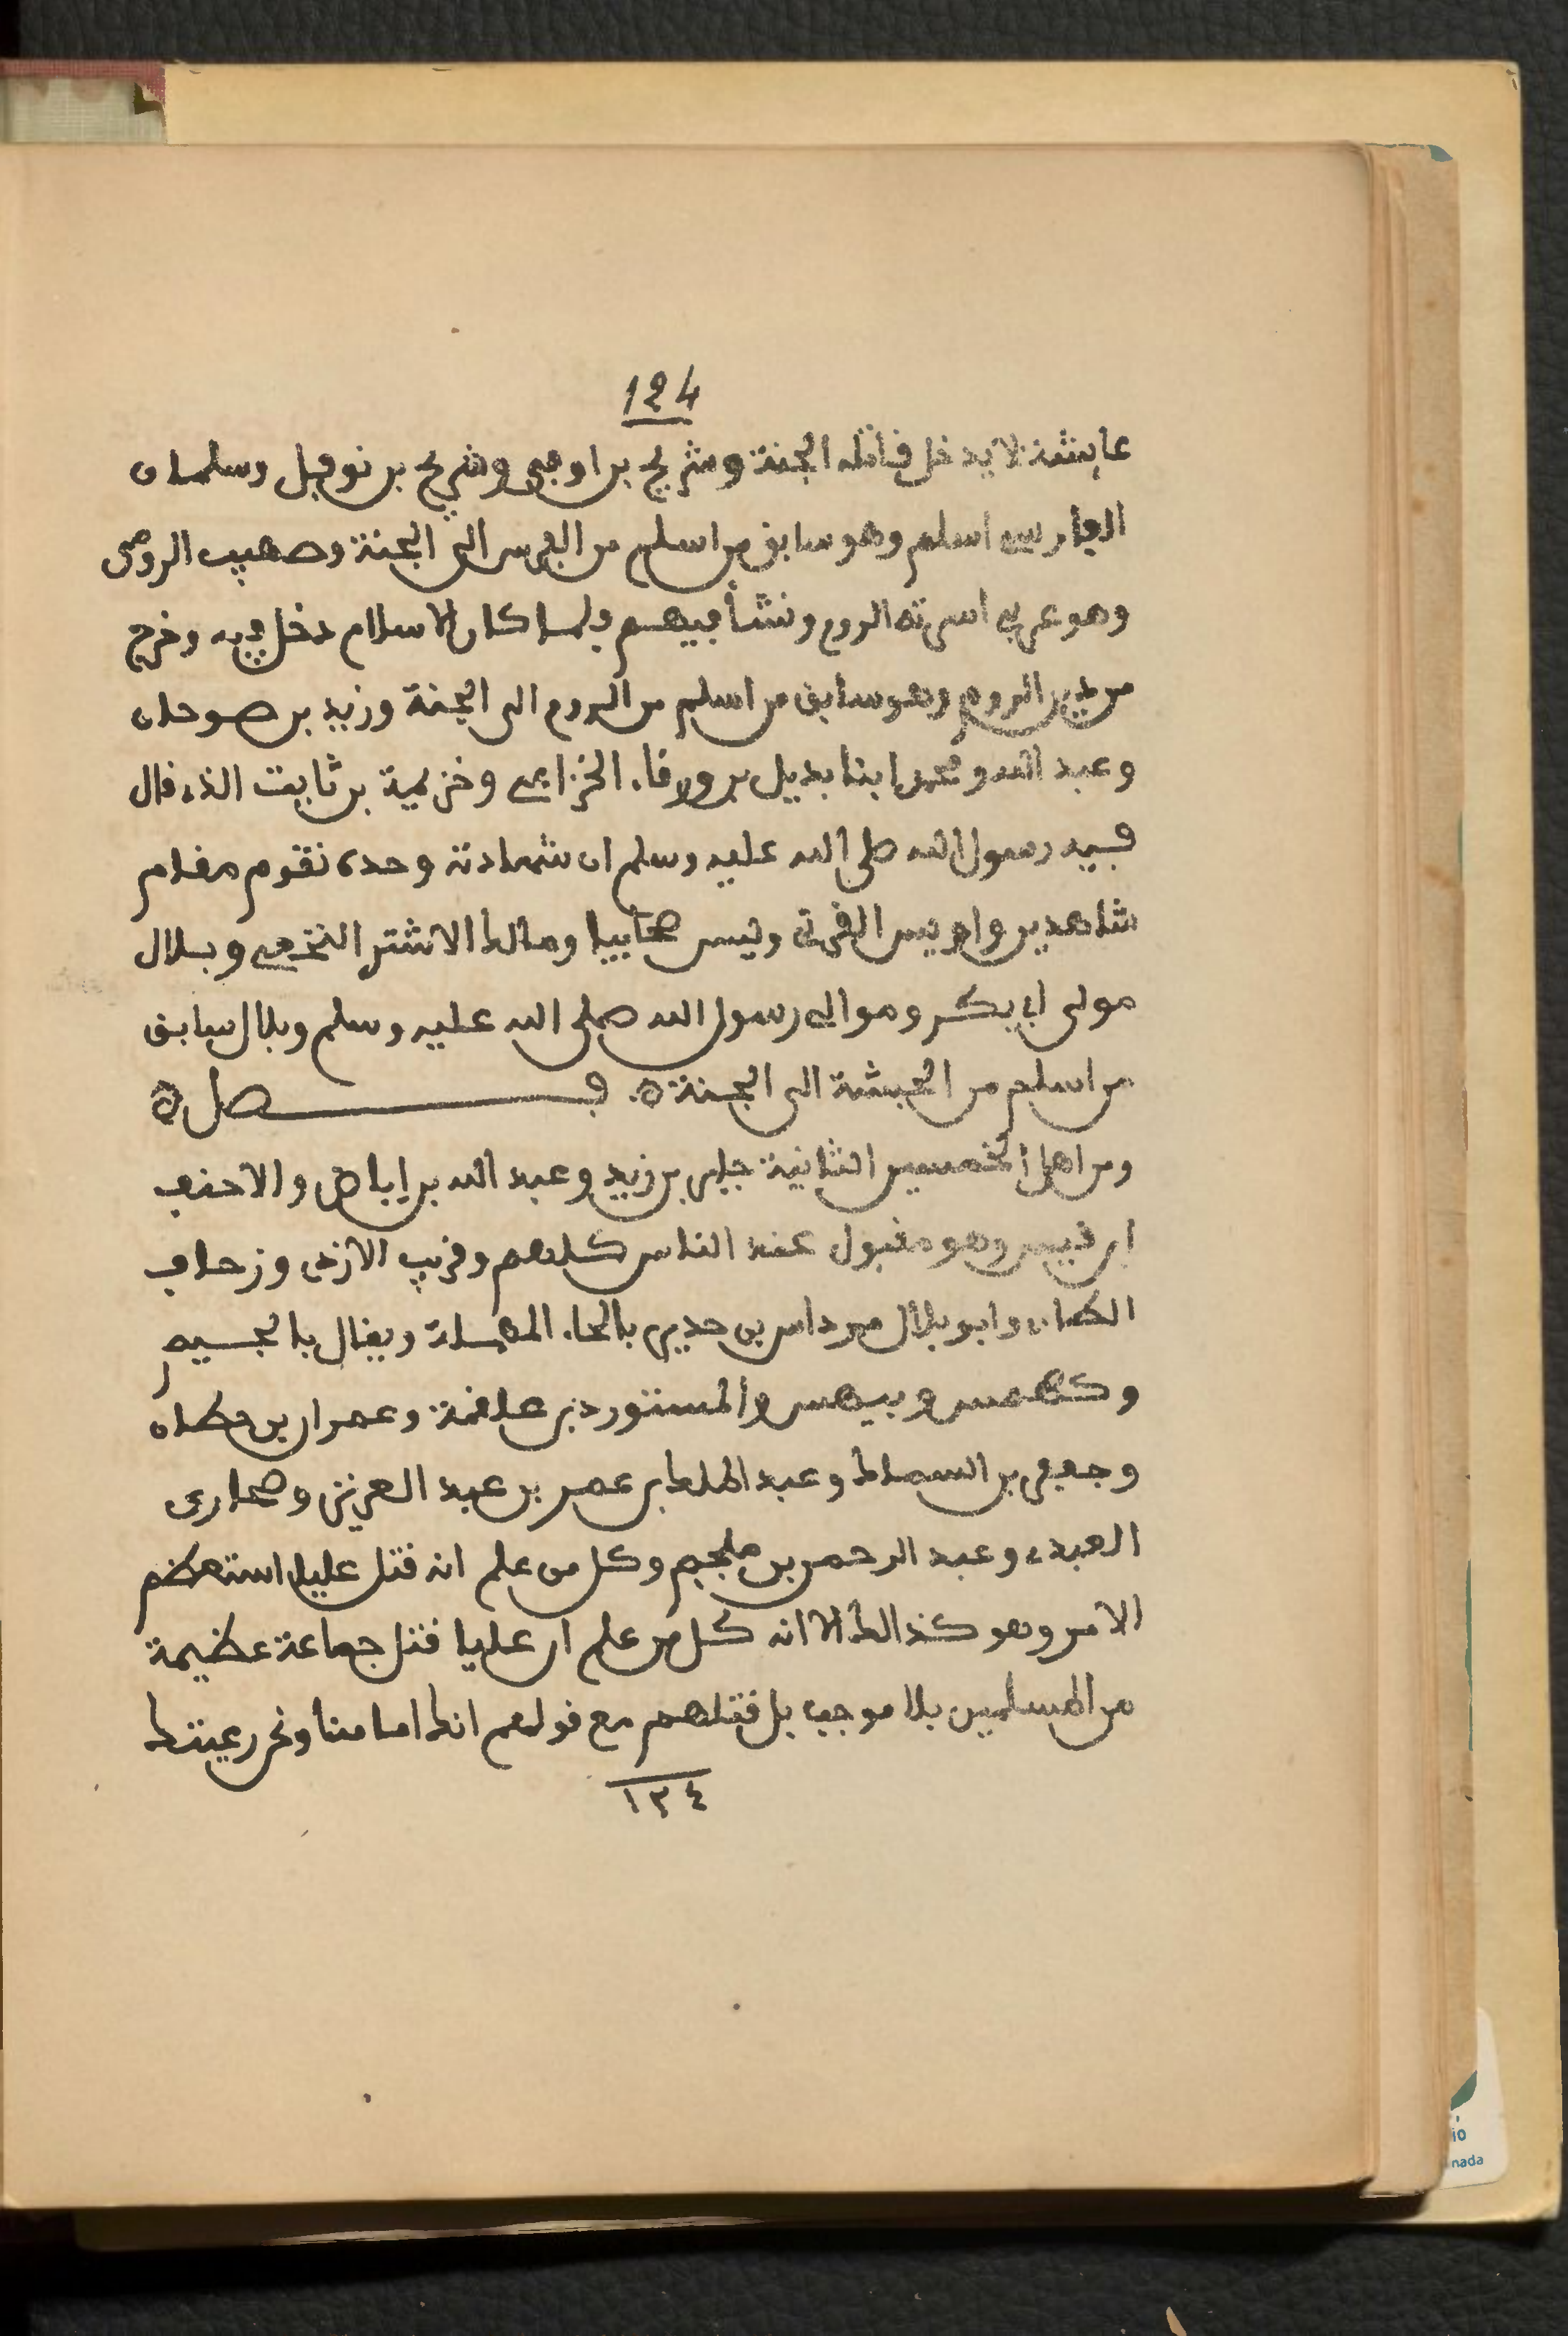 124
عايشة لا يدخل قاتله الجنة وشريح بن اوفى وشريح بن نوفيل وسلمان
الفارسي اسلم وهو سابق من اسلم من الفرس الى الجنة وصهيب الرومي
وهو عربي اسرته الروم ونشأ فيهم ولما كان الاسلام دخل فيه وخرج
من دين الروم وهو سابق من اسلم من الروم الى الجنة وزيد بن صوحان
وعبد الله ومحمد ابنا بديل بن ورقاء الخزاعي وخزيمة بن ثابت الذي قال
فيه رسول الله صلى الله عليه وسلم ان شهادته وحده تقوم مقام
شاهدين واويس القرني وليس صحابيا ومالك الاشتر النخعي وبلال
مولى ابي بكر وموالي رسول الله صلى الله عليه وسلم وبلال سابق
من اسلم من الحبشة الى الجنة ه. فصل ه
ومن اهل الخمسين الثانية جابر بن زيد وعبد الله بن اباض والاحنف
ابن قيس وهو مقبول عند الناس كلهم وقريب الازدي وزحاف
الطاي وابو بلال مرداس بن حدير بالحاء المهملة ويقال بالجيم
وكهمس وبيهس والمستورد بن علقمة وعمران بن حطان
وجعفر بن السماك وعبد الملك بن عمر بن عبد العزيز وصحاري
العبدي وعبد الرحمن بن ملجم وكل من علم انه قتل عليا استعظم
الامر وهو كذلك الا انه كل من علم ان عليا قتل جماعة عظيمة
من المسلمين بلا موجب بل قتلهم مع قولهم انك امامنا ونحن رعيتك
١٢٤